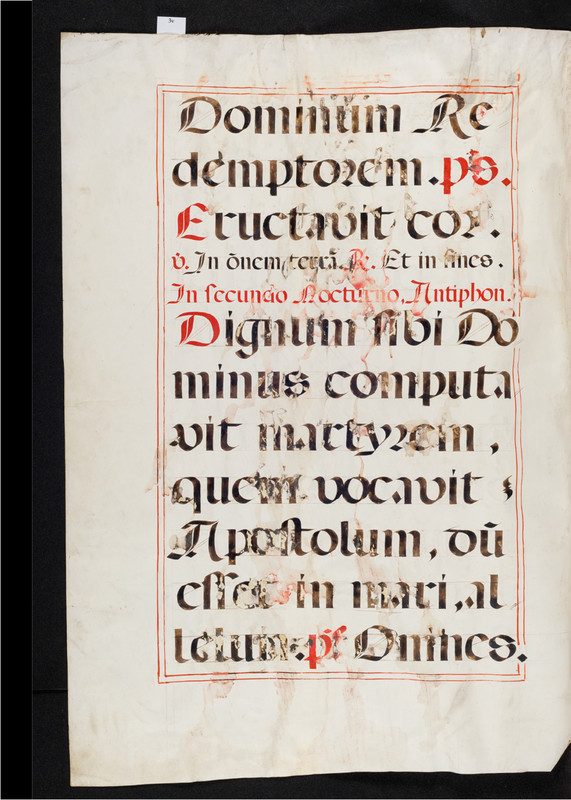 3v
Dominum Re
demptorem. ps.
Eructavit cor.
v. In õnem terrã. R. Et in fines.
In secundo Nocturno, Antiphon.
Dignum sibi Do
minus computa
vit martyrem,
quem vocavit
Apostolum, dũ
esset in mari, al
leluia. ps Omnes.